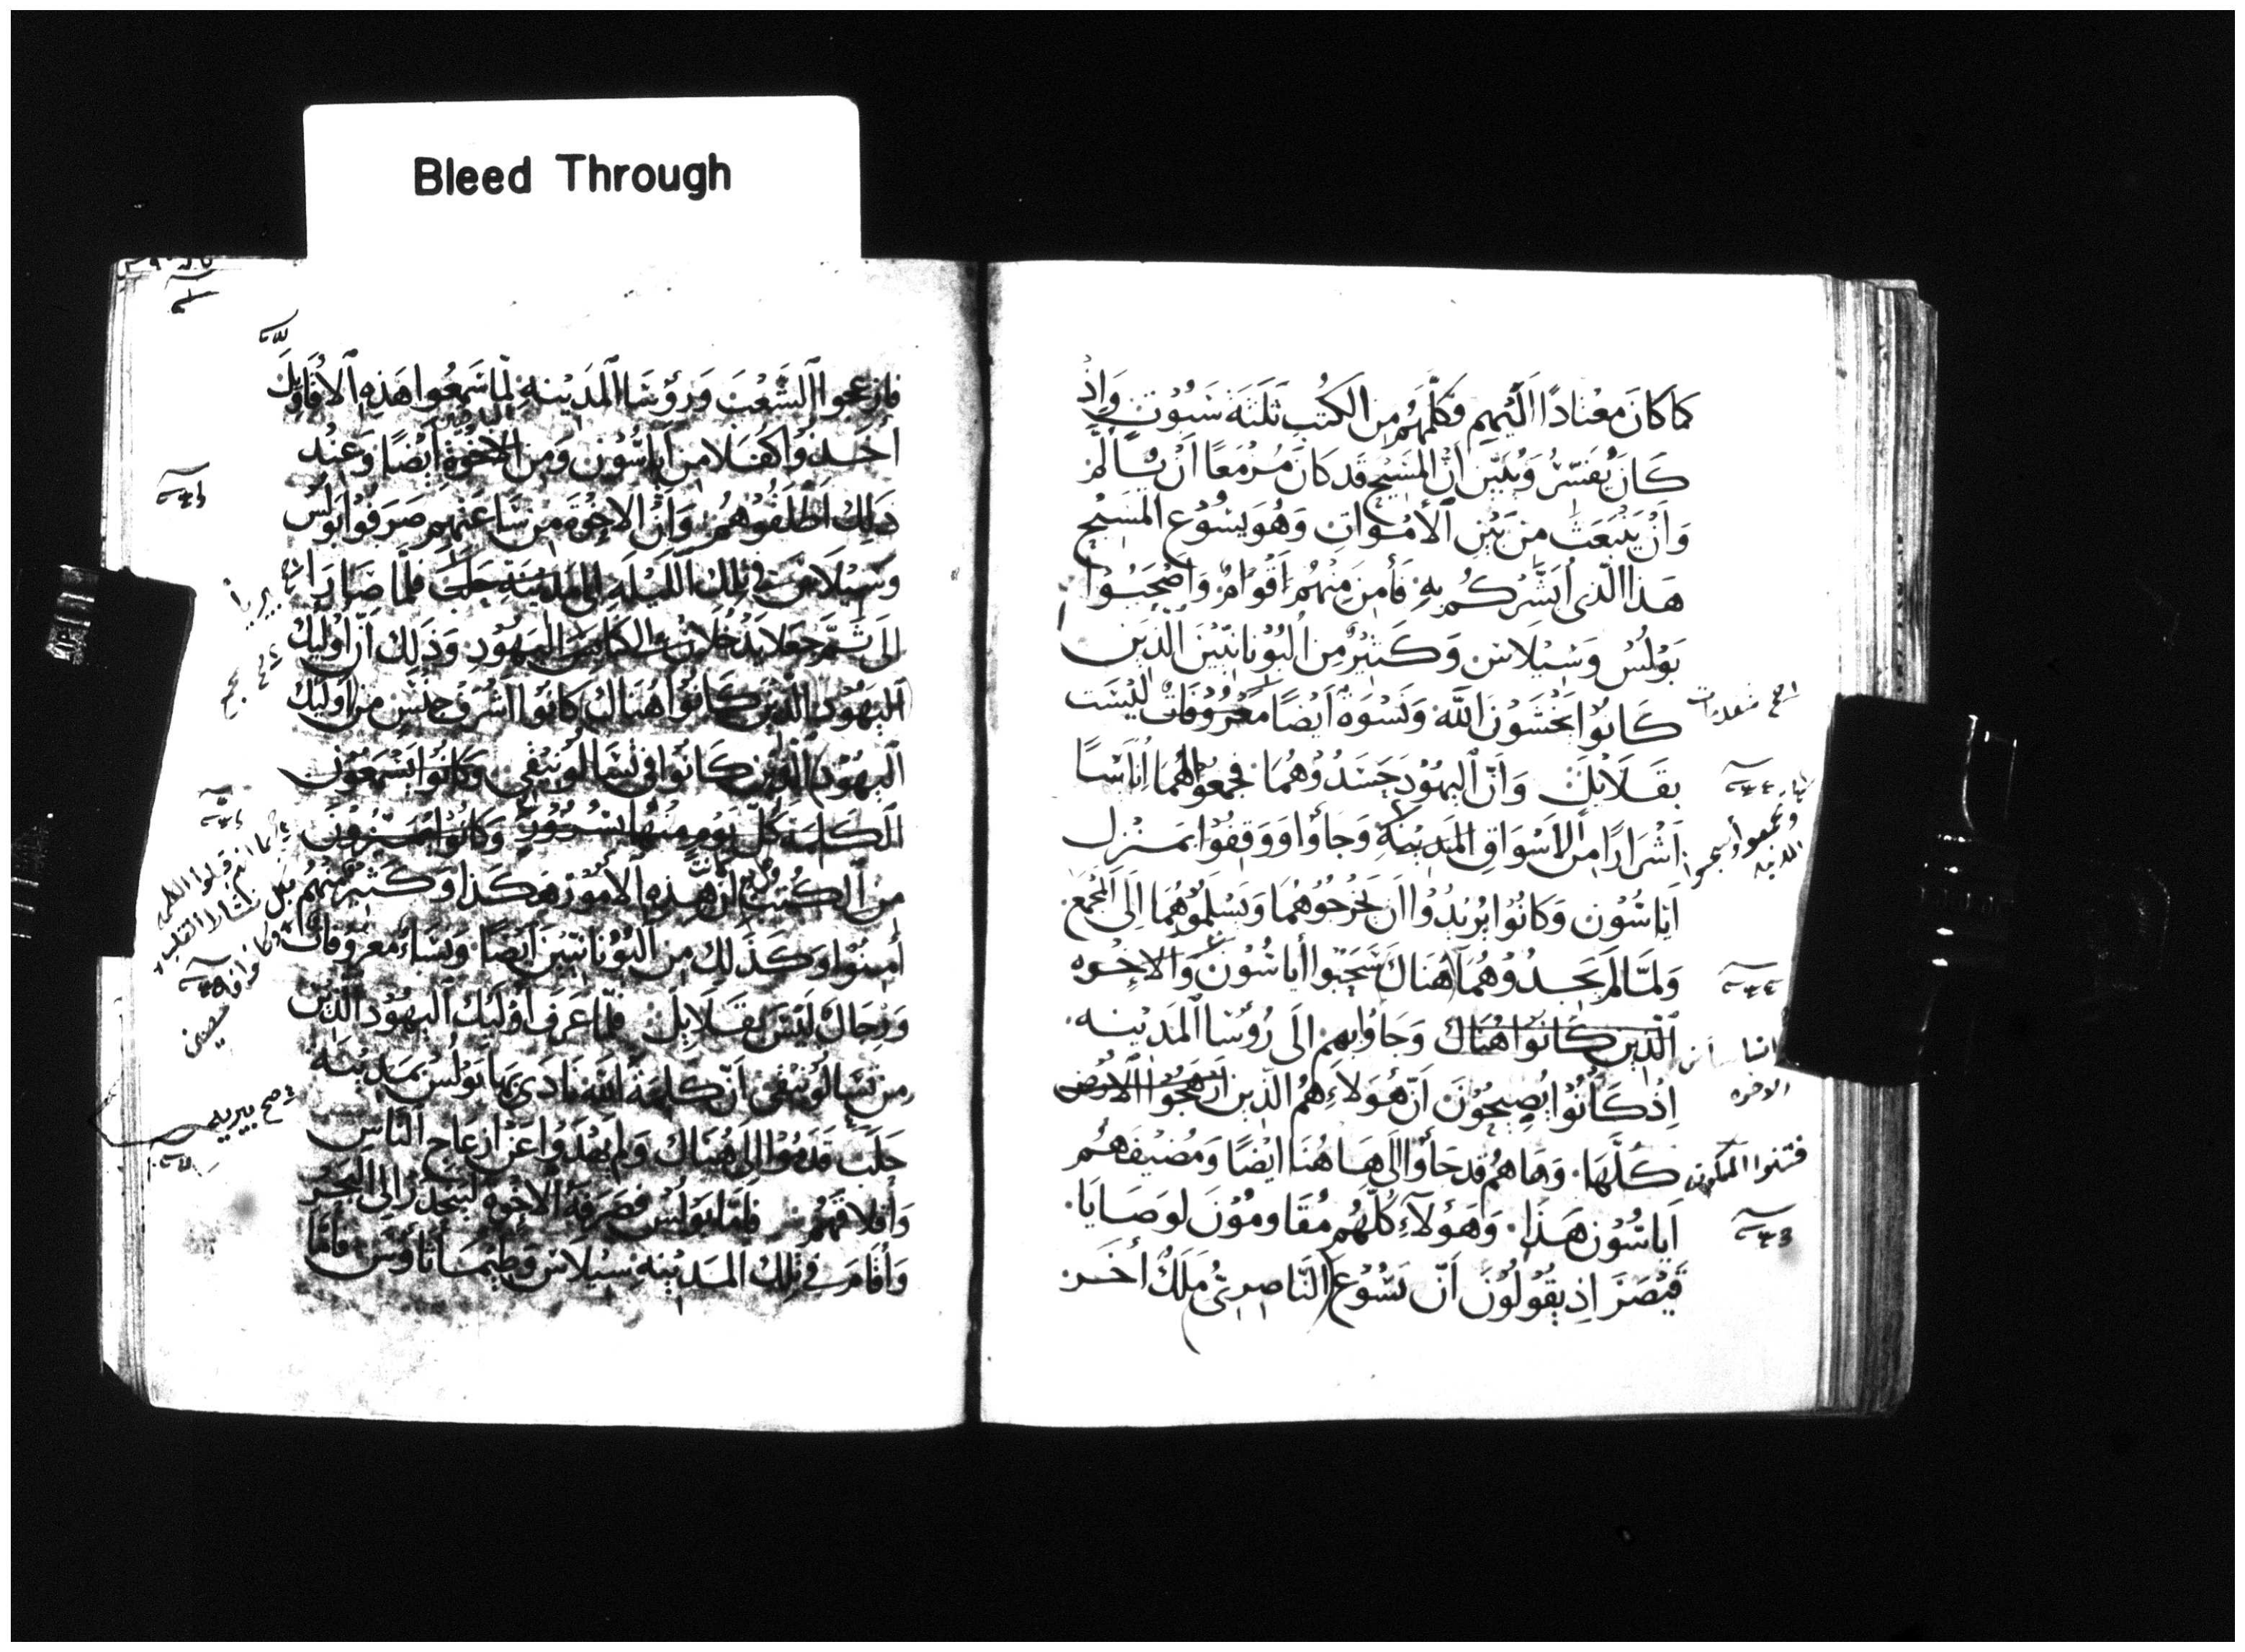 Bleed Through
كَمَا كَانَ مُعْتَادًا اَلَيْهِم فَكَلَّمَهُم مِنَ الكُتُبِ ثَلَثَةَ سُبُوتٍ وَاِذْ
كَانَ يُفَسِّرُ وَيُبَيِّن اَنَّ المَسِيْحَ قَد كَانَ مُزْمَعًا اَنْ يَتَأَلَّمَ
وَاَنْ يَنْبَعِثَ مِن بَيْنِ الأَمْوَاتِ وَهُوَ يَسُوْع المَسِيْح
هَذَا الَّذِى اُبَشِّرُكُم بِهِ فَأَمَنَ مِنْهُم اَقْوَامٌ وَاصْحَبُوا
بَوْلُسَ وَسِيْلَاسَ وَكَثِيْرٌ مِنَ اليُوْنَانِيِّيْنَ الَّذِينَ
كَانُوا يَخْشَوْنَ اللَّه وَنِسْوَةٌ اَيْضًا مَعْرُوْفَاتٌ لَيْسَت
بِقَلَائِلَ وَاَنَّ اليَهُوْدَ حَسَدُوْهُمَا فَجَمَعُوا لَهُمَا اُنَاسًا
اَشْرَارًا مِن الاَسْوَاقِ المَدِيْنَةِ وَجَاؤا وَوَقَفُوْا بِمَنْزِل
اَيَاسُوْن وَكَانُوْا يُرِيْدُوْا اَن يُخْرِجُوْهُمَا وَيُسَلِّمُوْهُمَا اِلَى المَجْمَع
وَلَمَّا لَم يَجِدُوْهُمَا هُنَاكَ سَحَبُوا أَيَاسُوْنَ وَالاِخْوَه
الَّذِين كَانُوا هُنَاكَ وَجَاؤا بِهِم اِلَى رُؤَسَا المَدِيْنَه
اِذْ كَانُوْا يَصِيْحُوْنَ اَنَّ هَؤلَاءِ هُم الَّذِينَ اَرْهَجُوا الاَرْض
كُلَّهَا وَهَا هُم قَد جَأَوْا اِلَى هَاهُنَا اَيْضًا وَمُضِيْفَهُم
اَيَاسُوْن هَذَا وَهَؤلَآءِ كُلُّهُم مُقَاوِمُوْنَ لِوَصَايَا
قَيْصَرَ اِذ يَقُوْلُوْنَ اَنَّ يَسُوْعَ النَّاصِرِىَّ مَلَكٌ أَخَر
فتنوا المسكونه
الاخوه
فازعجوا الشَّعْبَ وَرُؤْسَا المَدِيْنَةِ لمَّا سَمِعُوا هَذِهِ الأَقَاوِيْلَ
أَخَذُوا كُفَلَا مِن اَيَاسُوْن وَمِن الاِخْوَةِ اَيْضًا وَعِنْد
ذَلِكَ اَطْلَقُوْهُم وَاَنَّ الاِخْوَةَ مِن سَاعَتِهِم صَرَفُوْا بَوْلُسَ
وَسِيْلَاسَ فى تِلْكَ اللَّيْلَةِ اِلَى مَدِيْنَةِ حَلَبَ فلَمَّا صَارَا
اِلَى ثَمَّ جَعَلَا يَدْخُلَان الى كَنَائِسَ اليَهُوْدِ وَذَلِكَ اَنَّ اوْلَئِكَ
اليَهُوْدَ الَّذِيْنَ كَانُوْا هُنَاكَ كَانُوْا اشْرَفَ جِنْسٍ مِن اُوْلَئِكَ
اليَهُوْدِ الَّذِيْنَ كَانُوْا فى تَسَالُوْنِيْقِى وَكَانُوا يَسْمَعُوْنَ
الكَلِمَةَ كُلَّ يَوْمٍ مِنْهُمَا بِسُرُوْرٍ وَكَانُوا يُمَيِّزُوْنَ
مِنَ الكُتُبِ اَنَّ هَذِهِ الأُمُوْرَ هَكَذَا وَكَثِيْرٌ مِنْهُم
أَمَنُوْا وَكَذَلِكَ مِن اليُوْنَانِيِّيْنَ اَيْضًا وَنِسَاءٌ مَعْرُوفَاتٌ
وَرِجَالٌ لَيْسَ بِقَلَائِلَ فَلَمَّا عَرَفَ اُوْلَئِكَ اليَهُوْدُ الَّذِيْنَ
مِن تَسَالُوْنِيْقِى اَنَّ كَلِمَةَ اللَّه نَادَى بِهَا بَوْلُسُ بِمَدِيْنَةِ
حَلَبَ قَدِمُوْا اِلَى هُنَاكَ وَلَم يَهْدَوْا عَن اِزْعَاجِ النَّاسِ
وَاِقْلَاقِهِم فَامَّا بَوْلُسُ فَصَرَفَهُ الاِخْوَه لِيَنْحَدِرَ اِلَى البَحْر
وَأَقَامَ فى تِلْكَ المَدِيْنَه سِيْلَاسُ وَطِيْمَاثَاؤُس فَأَمَّا
صح بيريا